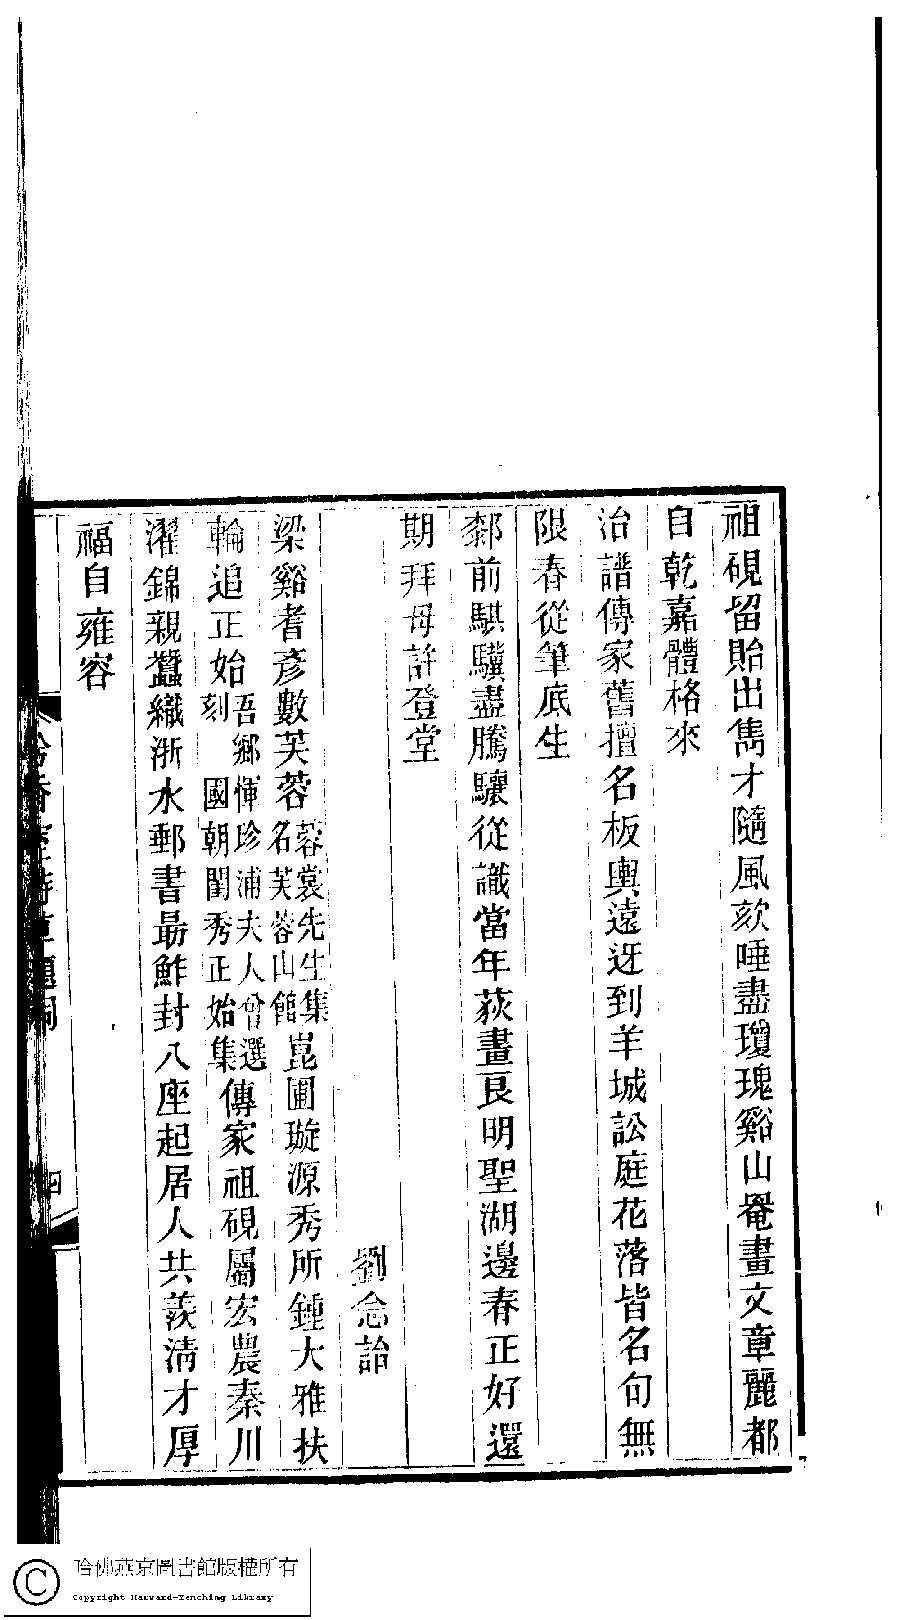 祖硯留貽出雋才隨風欬唾盡瓊瑰谿山罨畫文章麗都
自乾嘉體格來
治譜傳家舊擅名板輿遠迓到羊城訟庭花落皆名句無
限春從筆底生
鄴前騏驥盡騰驤從識當年荻畫良明聖湖邊春正好還
期拜母許登堂
劉念詒
梁谿耆彥數芙蓉蓉裳先生集名芙蓉山館崑圃璇源秀所鍾大雅扶
輪追正始吾鄉惲珍浦夫人曾選刻國朝閨秀正始集傳家祖硯屬宏農秦川
濯錦親蠶織浙水郵書最鮓封八座起居人共羨清才厚
福自雍容
哈佛燕京圖書館版權所有
Copyright Harvard-Yenching Library